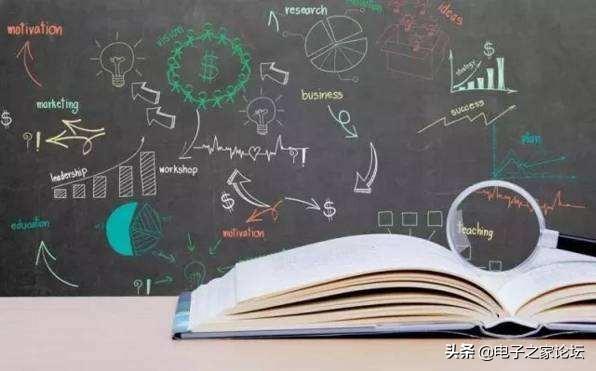 motivation
vision
research
ideas
strategy
$
$
marketing
business
success
$
?!
plan
?!
leadership
workshop
$
$
education
motivation
teaching
?!
头条 @电子之家论坛